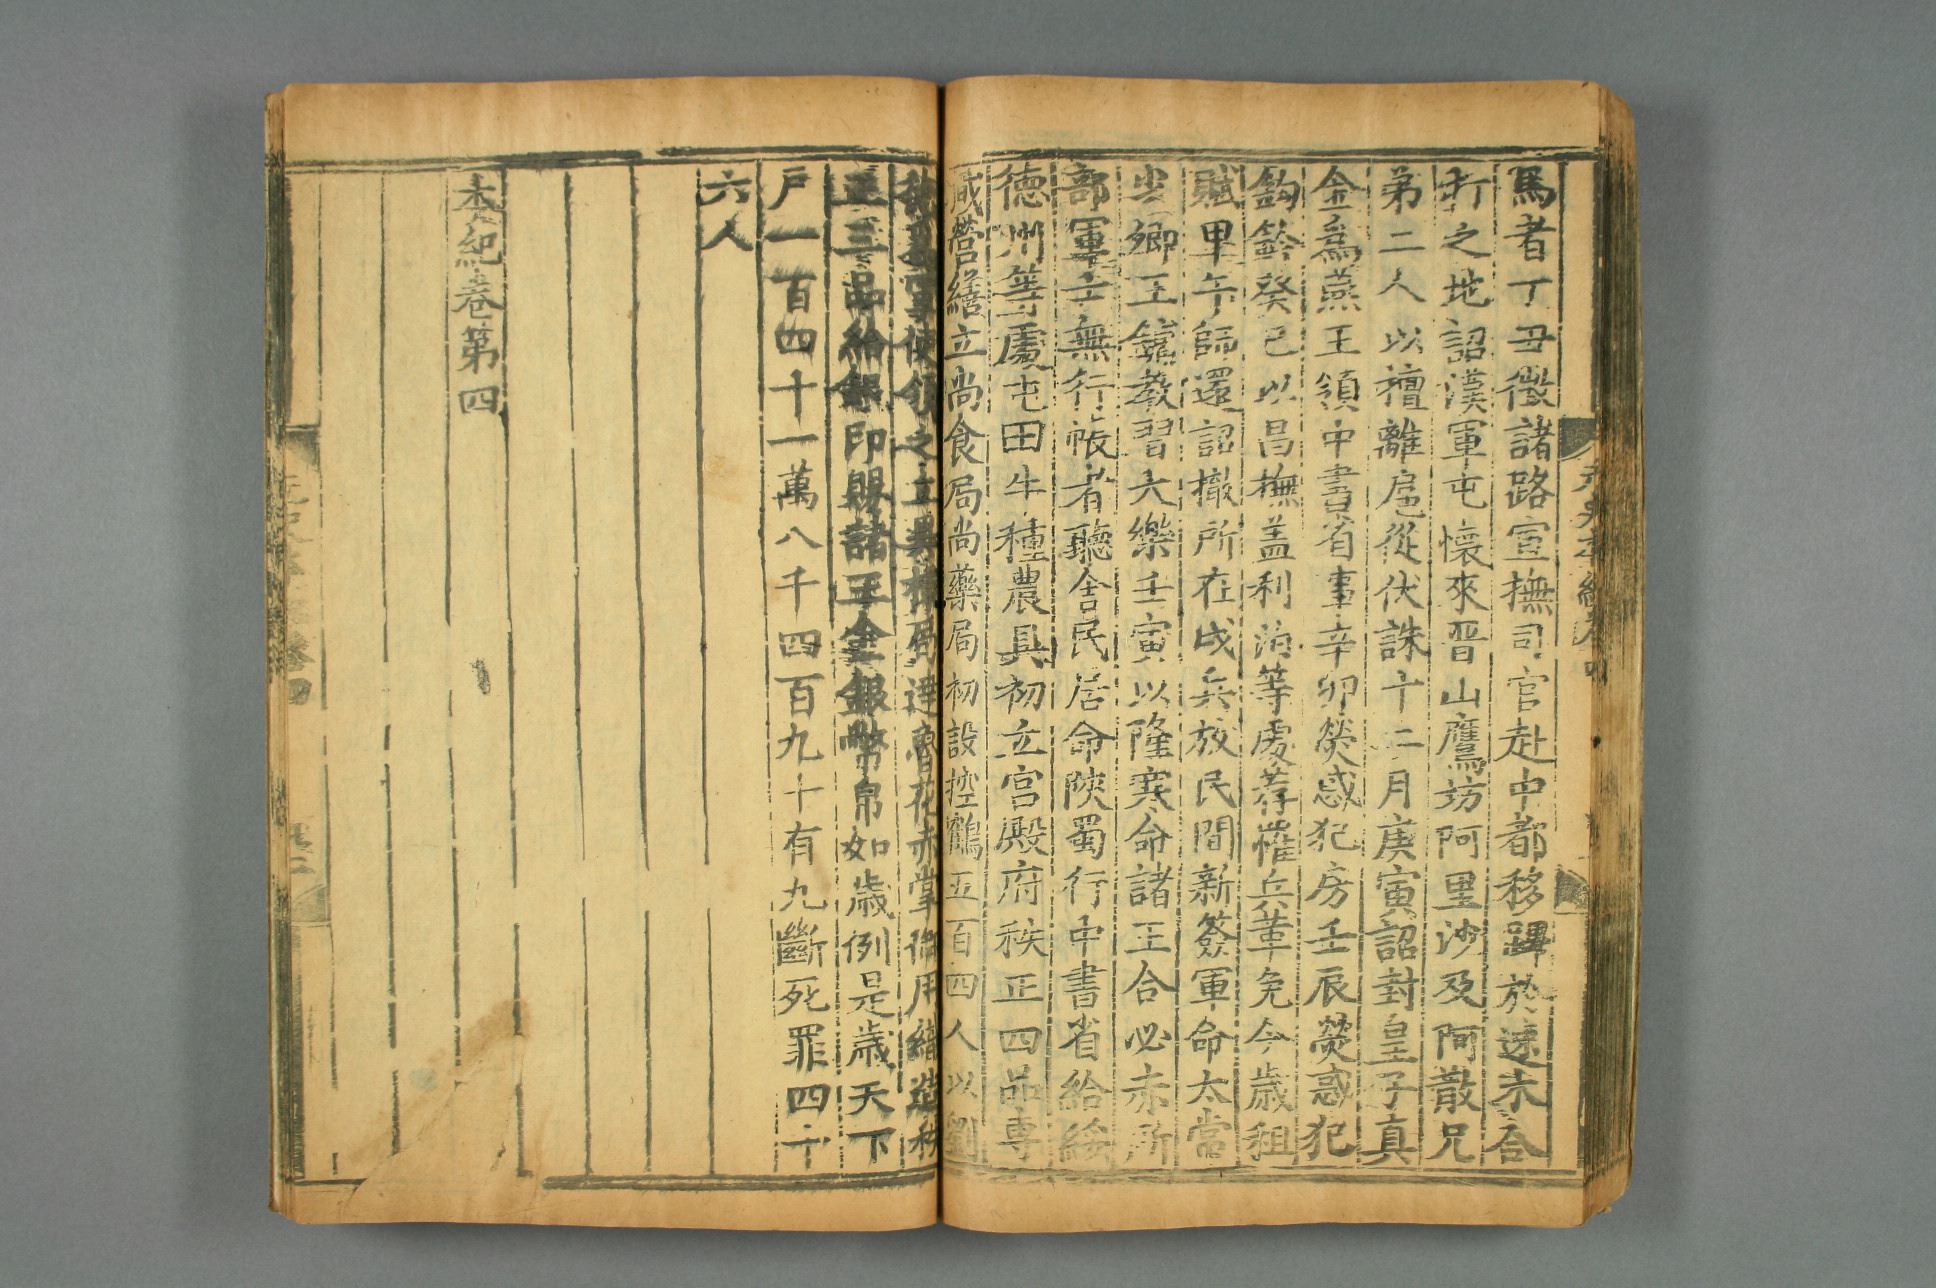 馬者丁丑徵諸路宣撫司官赴中都移蹕於速木合
打之地詔漢軍屯懷來晋山鷹坊阿里沙及阿散兄
弟二人以擅離扈從伏誅十二月庚寅詔封皇子真
金為燕王領中書省事辛卯熒惑犯房壬辰熒惑犯
鈎鈐癸巳以昌撫盖利泊等處荐罹兵革免今歲租
賦甲午師還詔撤所在戍兵放民間新簽軍命太常
少卿王鏞教習大樂壬寅以隆寒命諸王合必赤所
部軍士無行帳者聽舍民居命陝蜀行中書省給綏
德州等處屯田牛種農具初立宮殿府秩正四品專
職營繕立尚食局尚藥局初設控鶴五百四人以劉
德為軍使領之立異樣局達魯花赤掌御用織造秩
正三品給銀印賜諸王金銀幣帛如歲例是歲天下
戶一百四十一萬八千四百九十有九斷死罪四十
六人
本紀卷第四
元史本紀卷四